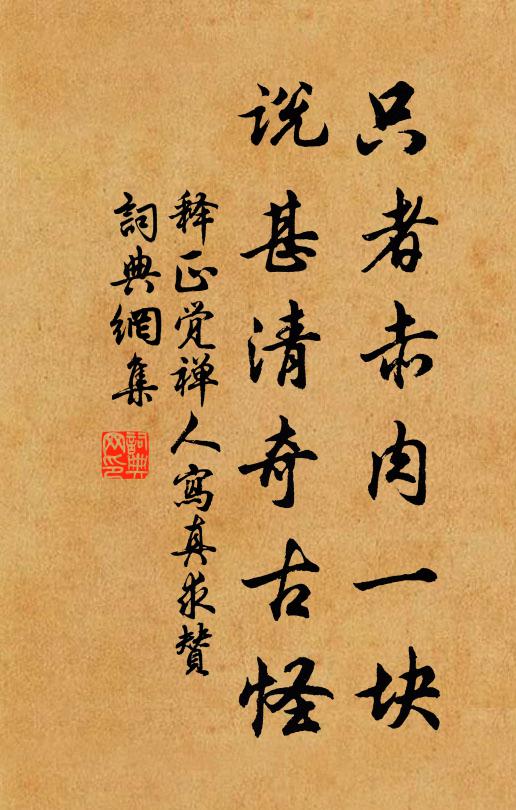 只者赤肉一块
说甚清奇古怪
释正觉禅人寫真求赞
詞典網集
詞典網印